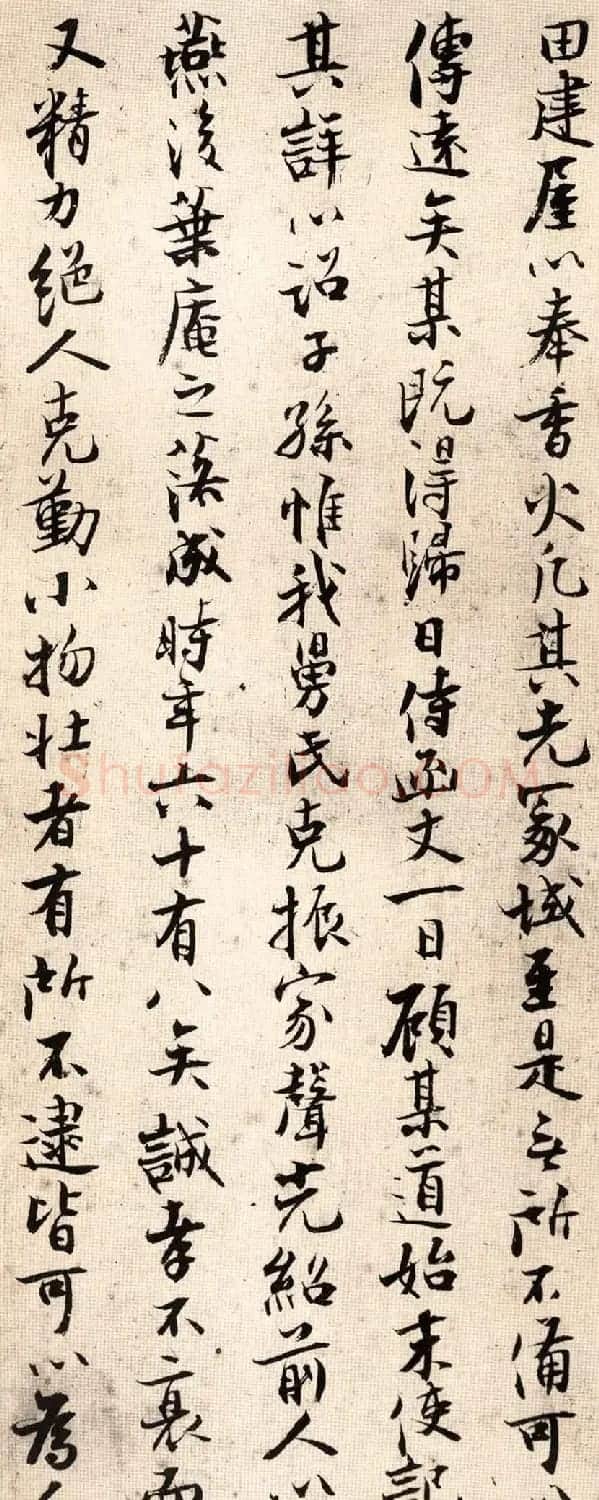 田建屋以奉香火凡其先冢域至是無所不備可以
傳遠矣某既得歸日侍函丈一日顧某道始末使記
其詳以詔子孫惟我舅氏克振家聲光紹前人以
燕後葉庵之落成時年六十有八矣誠孝不衰而
又精力絕人克勤小物壯者有所不逮皆可以為
Shufaziliao.COM